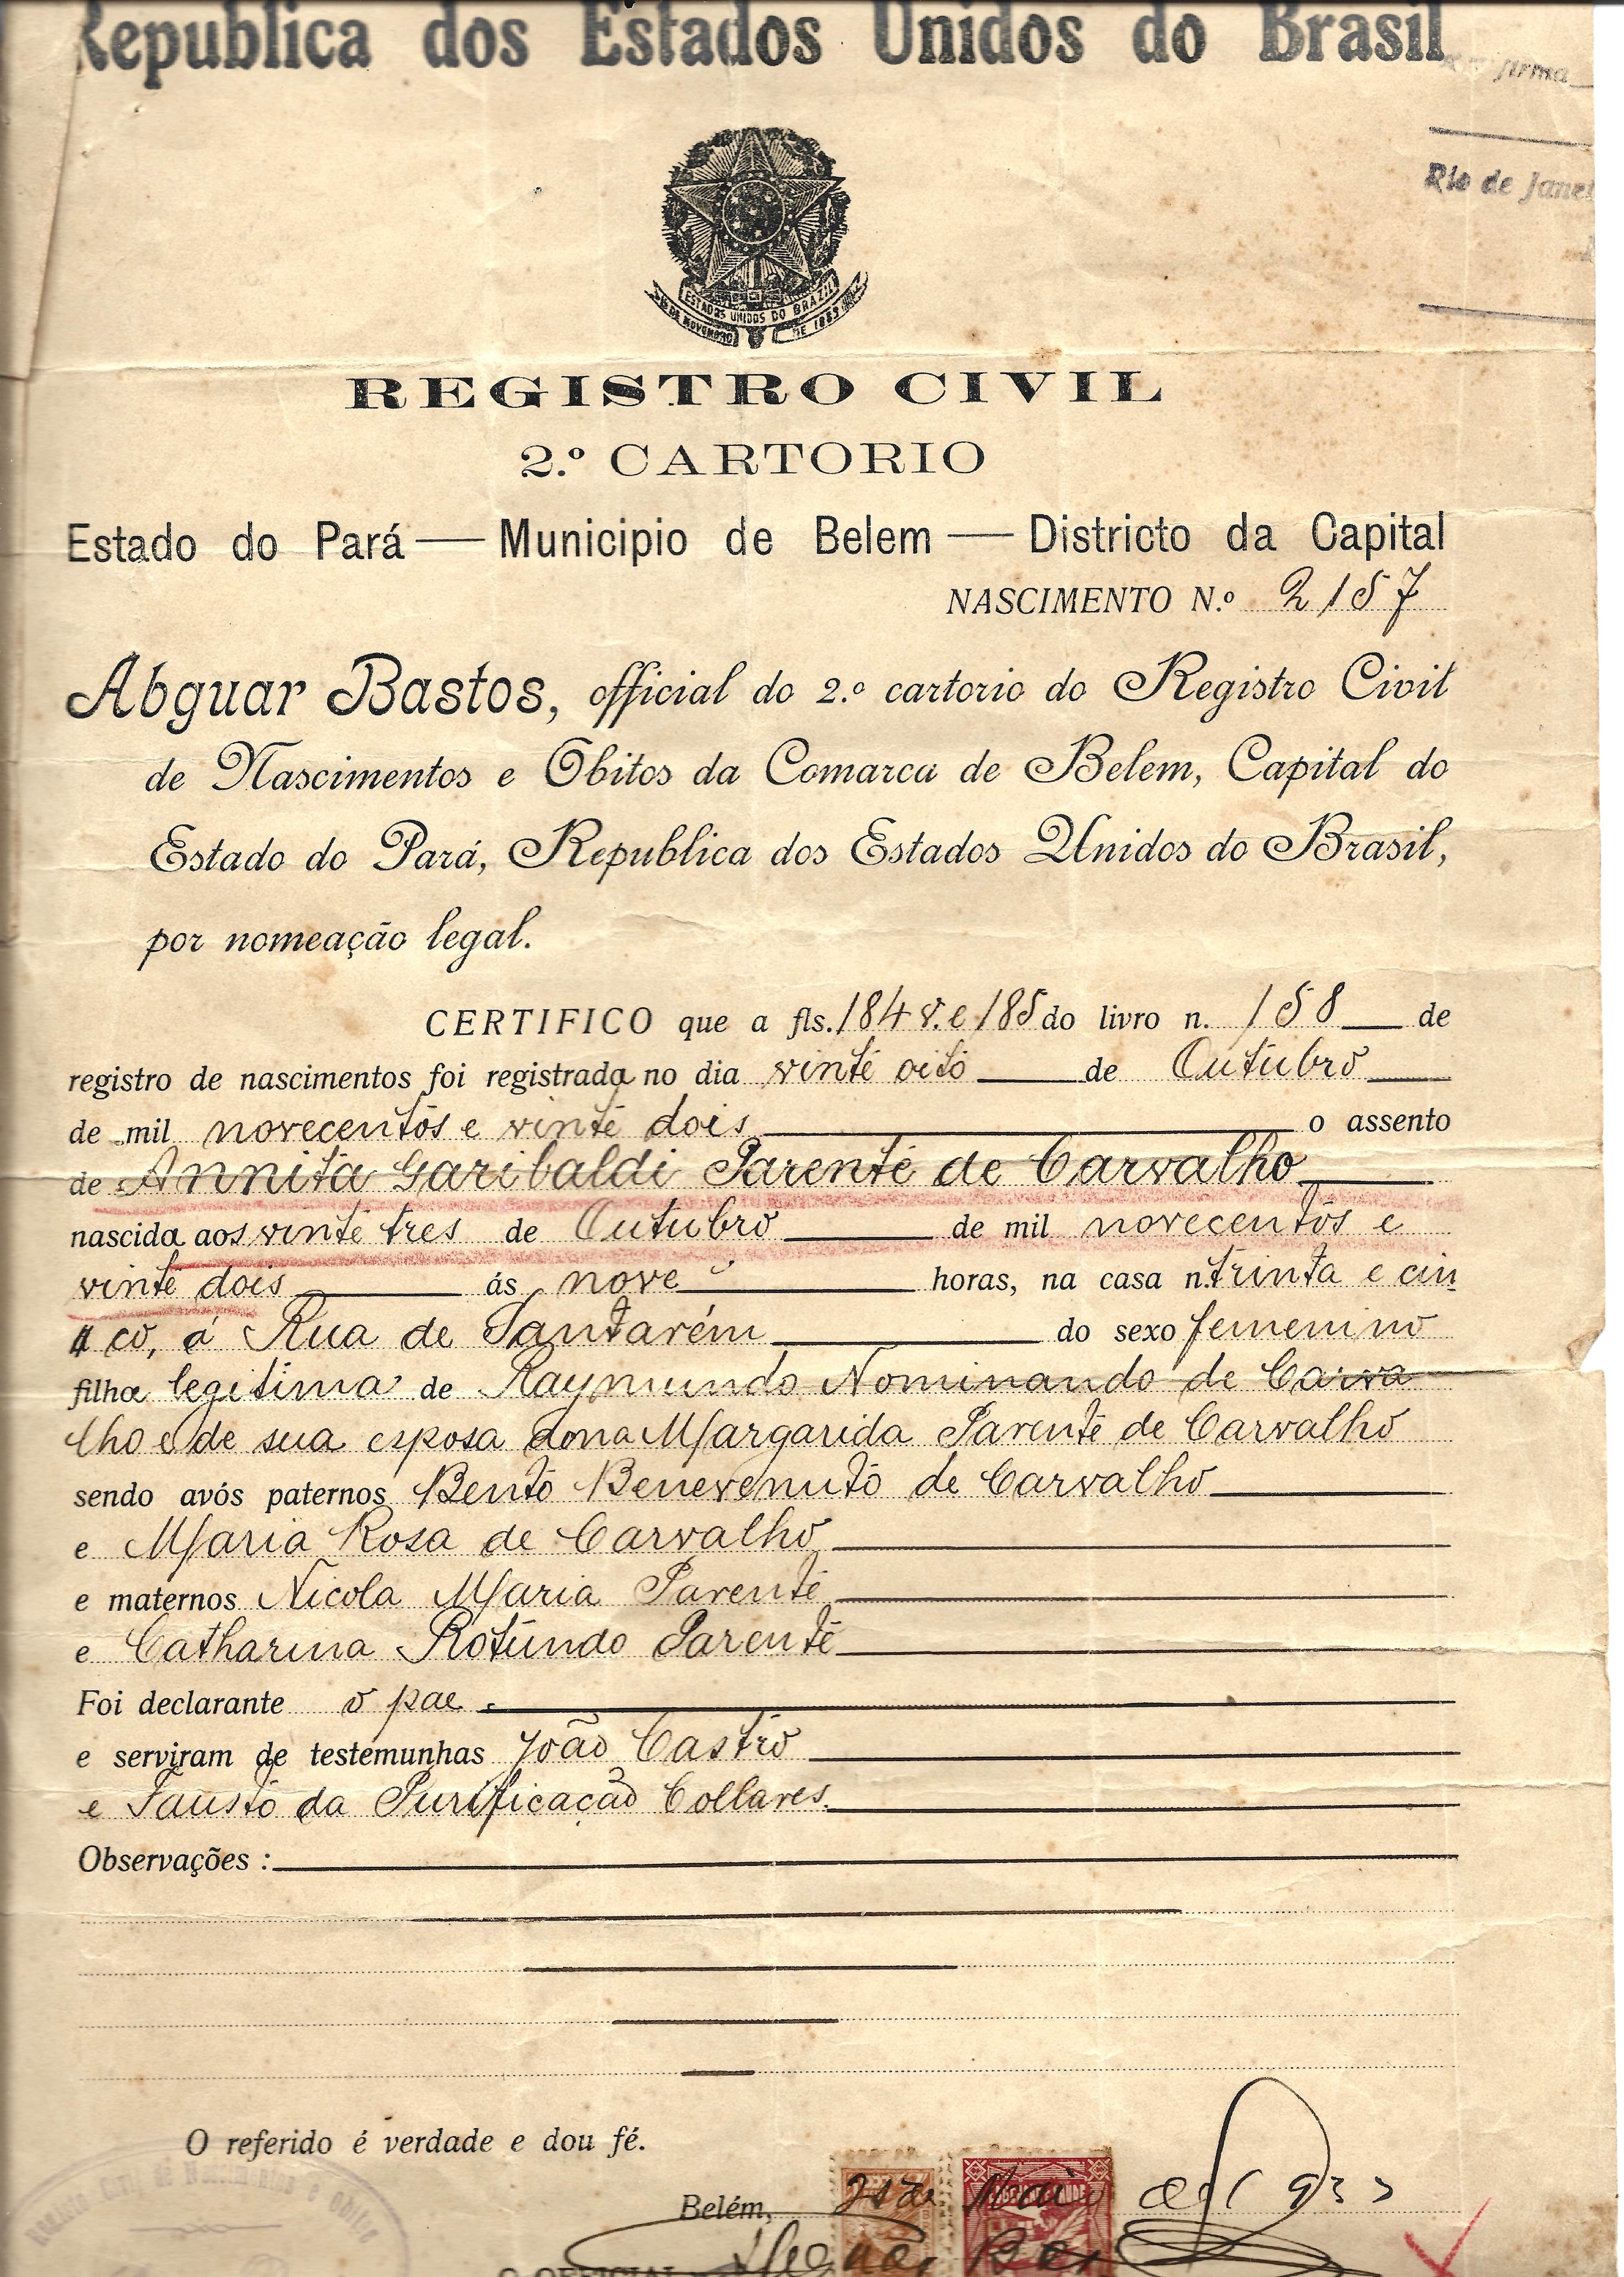 Republica dos Estados Unidos do Brasil
firma
Rio de Janei
ESTADOS UNIDOS DO BRAZIL
15 DE NOVEMBRO DE 1889
REGISTRO CIVIL
2.º CARTORIO
Estado do Pará — Municipio de Belem — Districto da Capital
NASCIMENTO N.º 2157
Abguar Bastos, official do 2.º cartorio do Registro Civil
de Nascimentos e Obitos da Comarca de Belem, Capital do
Estado do Pará, Republica dos Estados Unidos do Brasil,
por nomeação legal.
CERTIFICO que a fls. 184 v. e 185 do livro n. 158 de
registro de nascimentos foi registrada no dia vinte oito de Outubro
de mil novecentos e vinte dois o assento
de Annita Garibaldi Parente de Carvalho
nascida aos vinte tres de Outubro de mil novecentos e
vinte dois ás nove horas, na casa n. trinta e cin
co, á Rua de Santarém do sexo femenino
filha legitima de Raymundo Nominando de Carva
lho e de sua esposa dona Margarida Parente de Carvalho
sendo avós paternos Bento Benevenuto de Carvalho
e Maria Rosa de Carvalho
e maternos Nicola Maria Parente
e Catharina Rotundo Parente
Foi declarante o pae.
e serviram de testemunhas João Castro
e Fausto da Purificação Collares.
Observações :
O referido é verdade e dou fé.
Belém, Maio de 193
O OFFICIAL